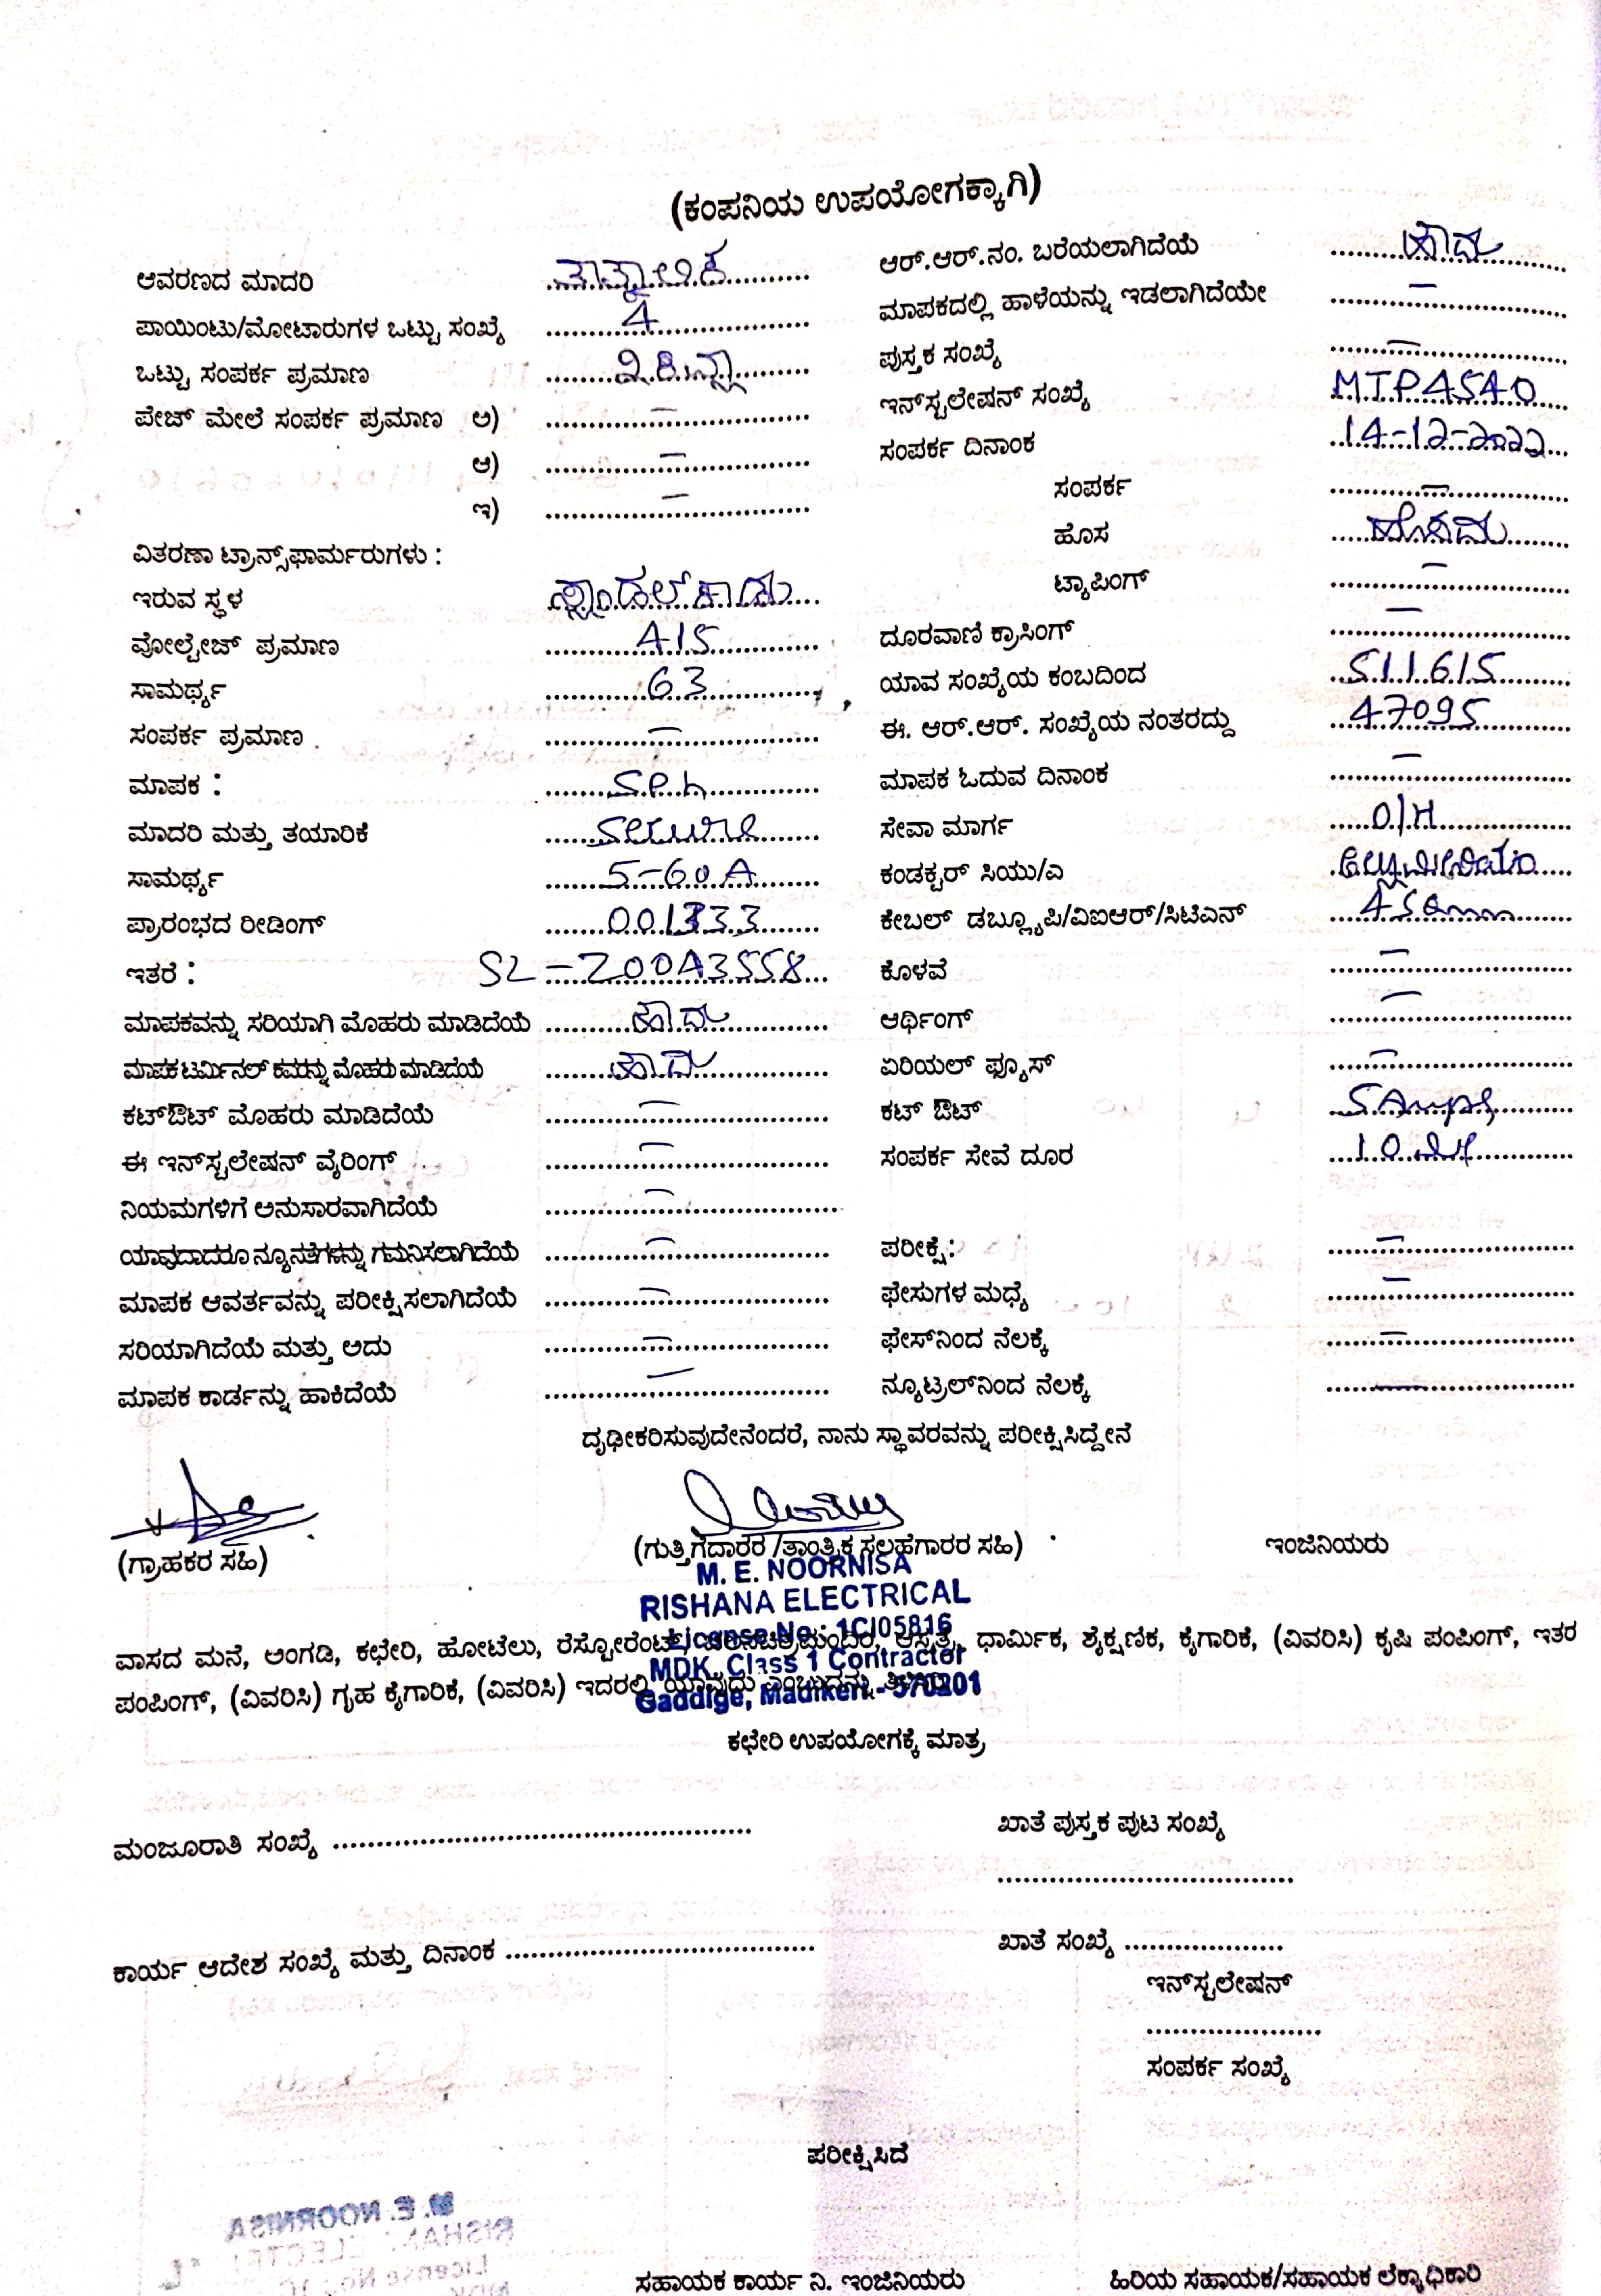 (ಕಂಪನಿಯ ಉಪಯೋಗಕ್ಕಾಗಿ)
ಆವರಣದ ಮಾದರಿ ತಾತ್ಕಾಲಿಕ
ಪಾಯಿಂಟು/ಮೋಟಾರುಗಳ ಒಟ್ಟು ಸಂಖ್ಯೆ 4
ಒಟ್ಟು ಸಂಪರ್ಕ ಪ್ರಮಾಣ
ಪೇಜ್ ಮೇಲೆ ಸಂಪರ್ಕ ಪ್ರಮಾಣ ಅ) —
ಆ) —
ಇ) —
ವಿತರಣಾ ಟ್ರಾನ್ಸ್‌ಫಾರ್ಮರುಗಳು :
ಇರುವ ಸ್ಥಳ ಸ್ಯಾಂಡಲ್ ಕಾಡು
ವೋಲ್ಟೇಜ್ ಪ್ರಮಾಣ 415
ಸಾಮರ್ಥ್ಯ 63
ಸಂಪರ್ಕ ಪ್ರಮಾಣ —
ಮಾಪಕ :
ಮಾದರಿ ಮತ್ತು ತಯಾರಿಕೆ Secure
ಸಾಮರ್ಥ್ಯ 5-60A
ಪ್ರಾರಂಭದ ರೀಡಿಂಗ್ 001333
ಇತರೆ : SL-20043558
ಮಾಪಕವನ್ನು ಸರಿಯಾಗಿ ಮೊಹರು ಮಾಡಿದೆಯೆ ಹೌದು
ಮಾಪಕ ಟರ್ಮಿನಲ್ ಕವರನ್ನು ಮೊಹರು ಮಾಡಿದೆಯೆ ಹೌದು
ಕಟ್‌ಔಟ್ ಮೊಹರು ಮಾಡಿದೆಯೆ —
ಈ ಇನ್‌ಸ್ಟಲೇಷನ್ ವೈರಿಂಗ್ —
ನಿಯಮಗಳಿಗೆ ಅನುಸಾರವಾಗಿದೆಯೆ —
ಯಾವುದಾದರೂ ನ್ಯೂನತೆಗಳನ್ನು ಗಮನಿಸಲಾಗಿದೆಯೆ —
ಮಾಪಕ ಆವರ್ತವನ್ನು ಪರೀಕ್ಷಿಸಲಾಗಿದೆಯೆ —
ಸರಿಯಾಗಿದೆಯೆ ಮತ್ತು ಅದು —
ಮಾಪಕ ಕಾರ್ಡನ್ನು ಹಾಕಿದೆಯೆ —
ಆರ್.ಆರ್.ನಂ. ಬರೆಯಲಾಗಿದೆಯೆ ಹೌದು
ಮಾಪಕದಲ್ಲಿ ಹಾಳೆಯನ್ನು ಇಡಲಾಗಿದೆಯೇ —
ಪುಸ್ತಕ ಸಂಖ್ಯೆ —
ಇನ್‌ಸ್ಟಲೇಷನ್ ಸಂಖ್ಯೆ MTP4540
ಸಂಪರ್ಕ ದಿನಾಂಕ 14-12-2022
ಸಂಪರ್ಕ —
ಹೊಸ ಹೊಸದು
ಟ್ಯಾಪಿಂಗ್ —
ದೂರವಾಣಿ ಕ್ರಾಸಿಂಗ್ —
ಯಾವ ಸಂಖ್ಯೆಯ ಕಂಬದಿಂದ 511615
ಈ. ಆರ್.ಆರ್. ಸಂಖ್ಯೆಯ ನಂತರದ್ದು 47095
ಮಾಪಕ ಓದುವ ದಿನಾಂಕ —
ಸೇವಾ ಮಾರ್ಗ O/H
ಕಂಡಕ್ಟರ್ ಸಿಯು/ಎ ಅಲ್ಯುಮಿನಿಯಂ
ಕೇಬಲ್ ಡಬ್ಲ್ಯೂಪಿ/ವಿಐಆರ್/ಸಿಟಿಎನ್
ಕೊಳವೆ —
ಆರ್ಥಿಂಗ್ —
ಏರಿಯಲ್ ಫ್ಯೂಸ್ —
ಕಟ್ ಔಟ್ 5 Amps
ಸಂಪರ್ಕ ಸೇವೆ ದೂರ 10
ಪರೀಕ್ಷೆ: —
ಫೇಸುಗಳ ಮಧ್ಯೆ —
ಫೇಸ್‌ನಿಂದ ನೆಲಕ್ಕೆ —
ನ್ಯೂಟ್ರಲ್‌ನಿಂದ ನೆಲಕ್ಕೆ —
ದೃಢೀಕರಿಸುವುದೇನೆಂದರೆ, ನಾನು ಸ್ಥಾವರವನ್ನು ಪರೀಕ್ಷಿಸಿದ್ದೇನೆ
(ಗ್ರಾಹಕರ ಸಹಿ) (ಗುತ್ತಿಗೆದಾರರ /ತಾಂತ್ರಿಕ ಸಲಹೆಗಾರರ ಸಹಿ) ಇಂಜಿನಿಯರು
M. E. NOORNISA
RISHANA ELECTRICAL
License No : 1CI05816
MDK, Class 1 Contractor
Gaddige, Madikeri - 570201
ವಾಸದ ಮನೆ, ಅಂಗಡಿ, ಕಛೇರಿ, ಹೋಟೆಲು, ರೆಸ್ಟೋರೆಂಟ್, ಚಲನಚಿತ್ರಮಂದಿರ, ಆಸ್ಪತ್ರೆ, ಧಾರ್ಮಿಕ, ಶೈಕ್ಷಣಿಕ, ಕೈಗಾರಿಕೆ, (ವಿವರಿಸಿ) ಕೃಷಿ ಪಂಪಿಂಗ್, ಇತರ
ಪಂಪಿಂಗ್, (ವಿವರಿಸಿ) ಗೃಹ ಕೈಗಾರಿಕೆ, (ವಿವರಿಸಿ) ಇದರಲ್ಲಿ ಯಾವುದು ಎಂಬುದನ್ನು ತಿಳಿಸಿರಿ
ಕಛೇರಿ ಉಪಯೋಗಕ್ಕೆ ಮಾತ್ರ
ಮಂಜೂರಾತಿ ಸಂಖ್ಯೆ ಖಾತೆ ಪುಸ್ತಕ ಪುಟ ಸಂಖ್ಯೆ
ಕಾರ್ಯ ಆದೇಶ ಸಂಖ್ಯೆ ಮತ್ತು ದಿನಾಂಕ ಖಾತೆ ಸಂಖ್ಯೆ
ಇನ್‌ಸ್ಟಲೇಷನ್
ಸಂಪರ್ಕ ಸಂಖ್ಯೆ
ಪರೀಕ್ಷಿಸಿದೆ
ಸಹಾಯಕ ಕಾರ್ಯ ನಿ. ಇಂಜಿನಿಯರು ಹಿರಿಯ ಸಹಾಯಕ/ಸಹಾಯಕ ಲೆಕ್ಕಾಧಿಕಾರಿ